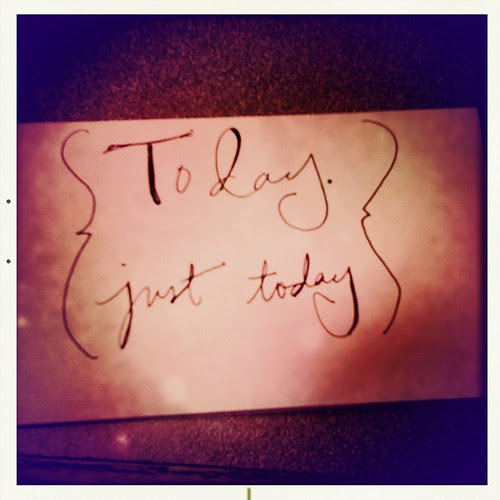 { Today. }
just today